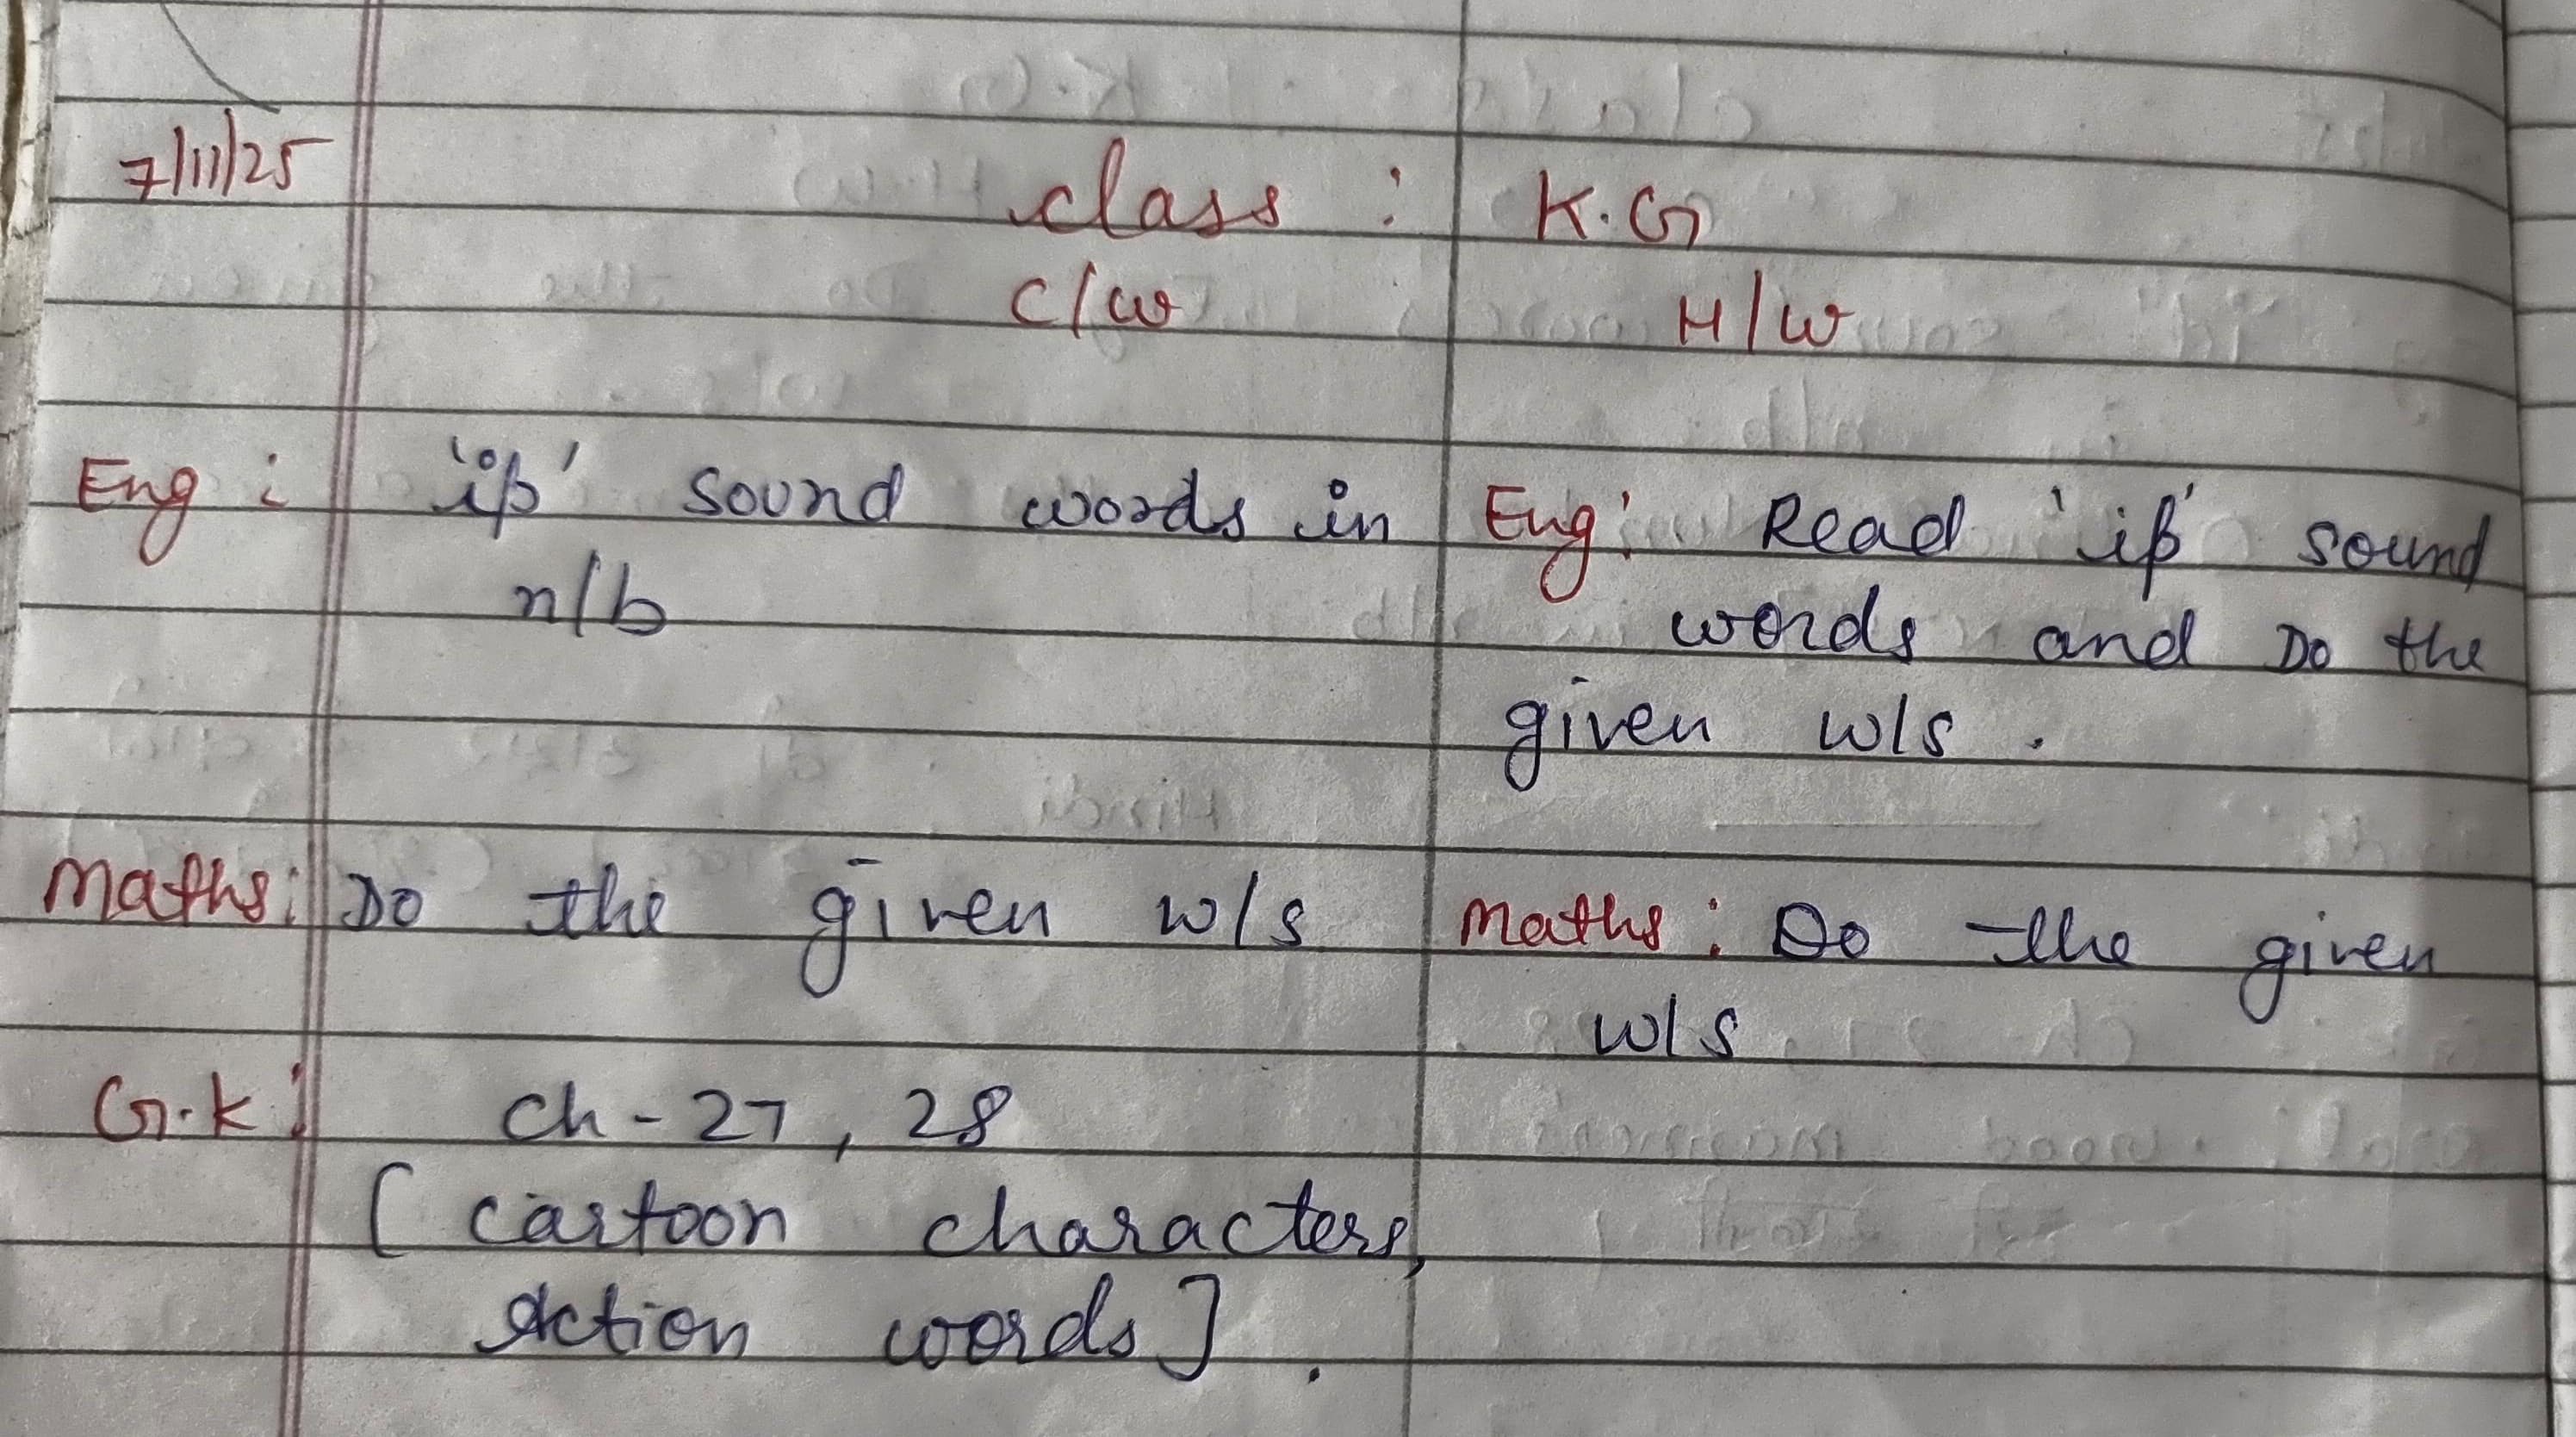 7/11/25
class : K.G
C/W
H/W
Eng : 'ip' sound words in
n/b
Maths: Do the given w/s
G.K: Ch - 27, 28
[ cartoon characters,
Action words ] .
Eng: Read 'ip' sound
words and Do the
given w/s .
Maths : Do the given
w/s